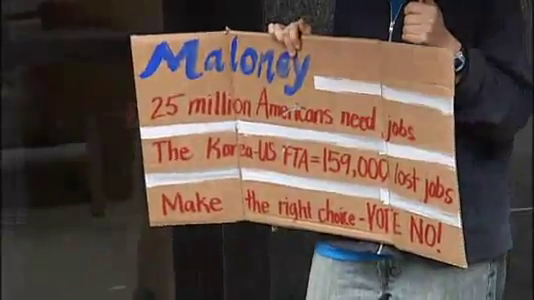 Maloney
25 million Americans need jobs
The Korea-US FTA=159,000 lost jobs
Make the right choice-VOTE NO!